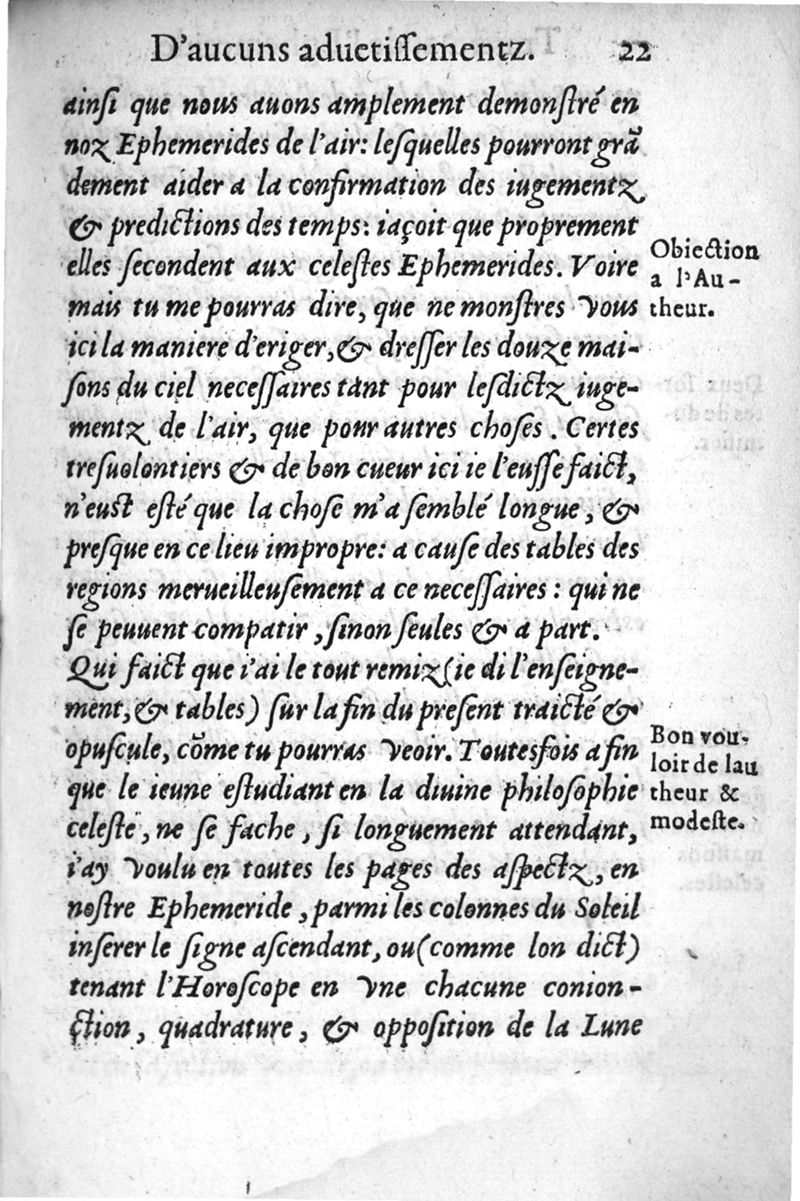 D'aucuns aduetiſſementz. 22
ainſi que nous auons amplement demonſtré en
noz Ephemerides de l'air: leſquelles pourront grã
dement aider a la confirmation des iugementz
& predictions des temps: iaçoit que proprement
elles ſecondent aux celeſtes Ephemerides. Voire
mais tu me pourras dire, que ne monſtres Vous
ici la maniere d'eriger, & dreſſer les douze mai-
ſons du ciel neceſſaires tant pour leſdictz iuge-
mentz de l'air, que pour autres choſes. Certes
treſuolontiers & de bon cueur ici ie l'euſſe faict,
n'euſt eſté que la choſe m'a ſemblé longue, &
preſque en ce lieu impropre: a cauſe des tables des
regions merueilleuſement a ce neceſſaires: qui ne
ſe peuuent compatir, ſinon ſeules & a part.
Qui faict que i'ai le tout remiz (ie di l'enſeigne-
ment, & tables) ſur la fin du preſent traicté &
opuſcule, cõme tu pourras Veoir. Toutesfois afin
que le ieune eſtudiant en la diuine philoſophie
celeſte, ne ſe fache, ſi longuement attendant,
i'ay Voulu en toutes les pages des aſpectz, en
noſtre Ephemeride, parmi les colonnes du Soleil
inſerer le ſigne aſcendant, ou (comme lon dict)
tenant l'Horoſcope en Vne chacune conion-
ction, quadrature, & oppoſition de la Lune
Obiection
a l'Au-
theur.
Bon vou-
loir de lau
theur &
modeſte.